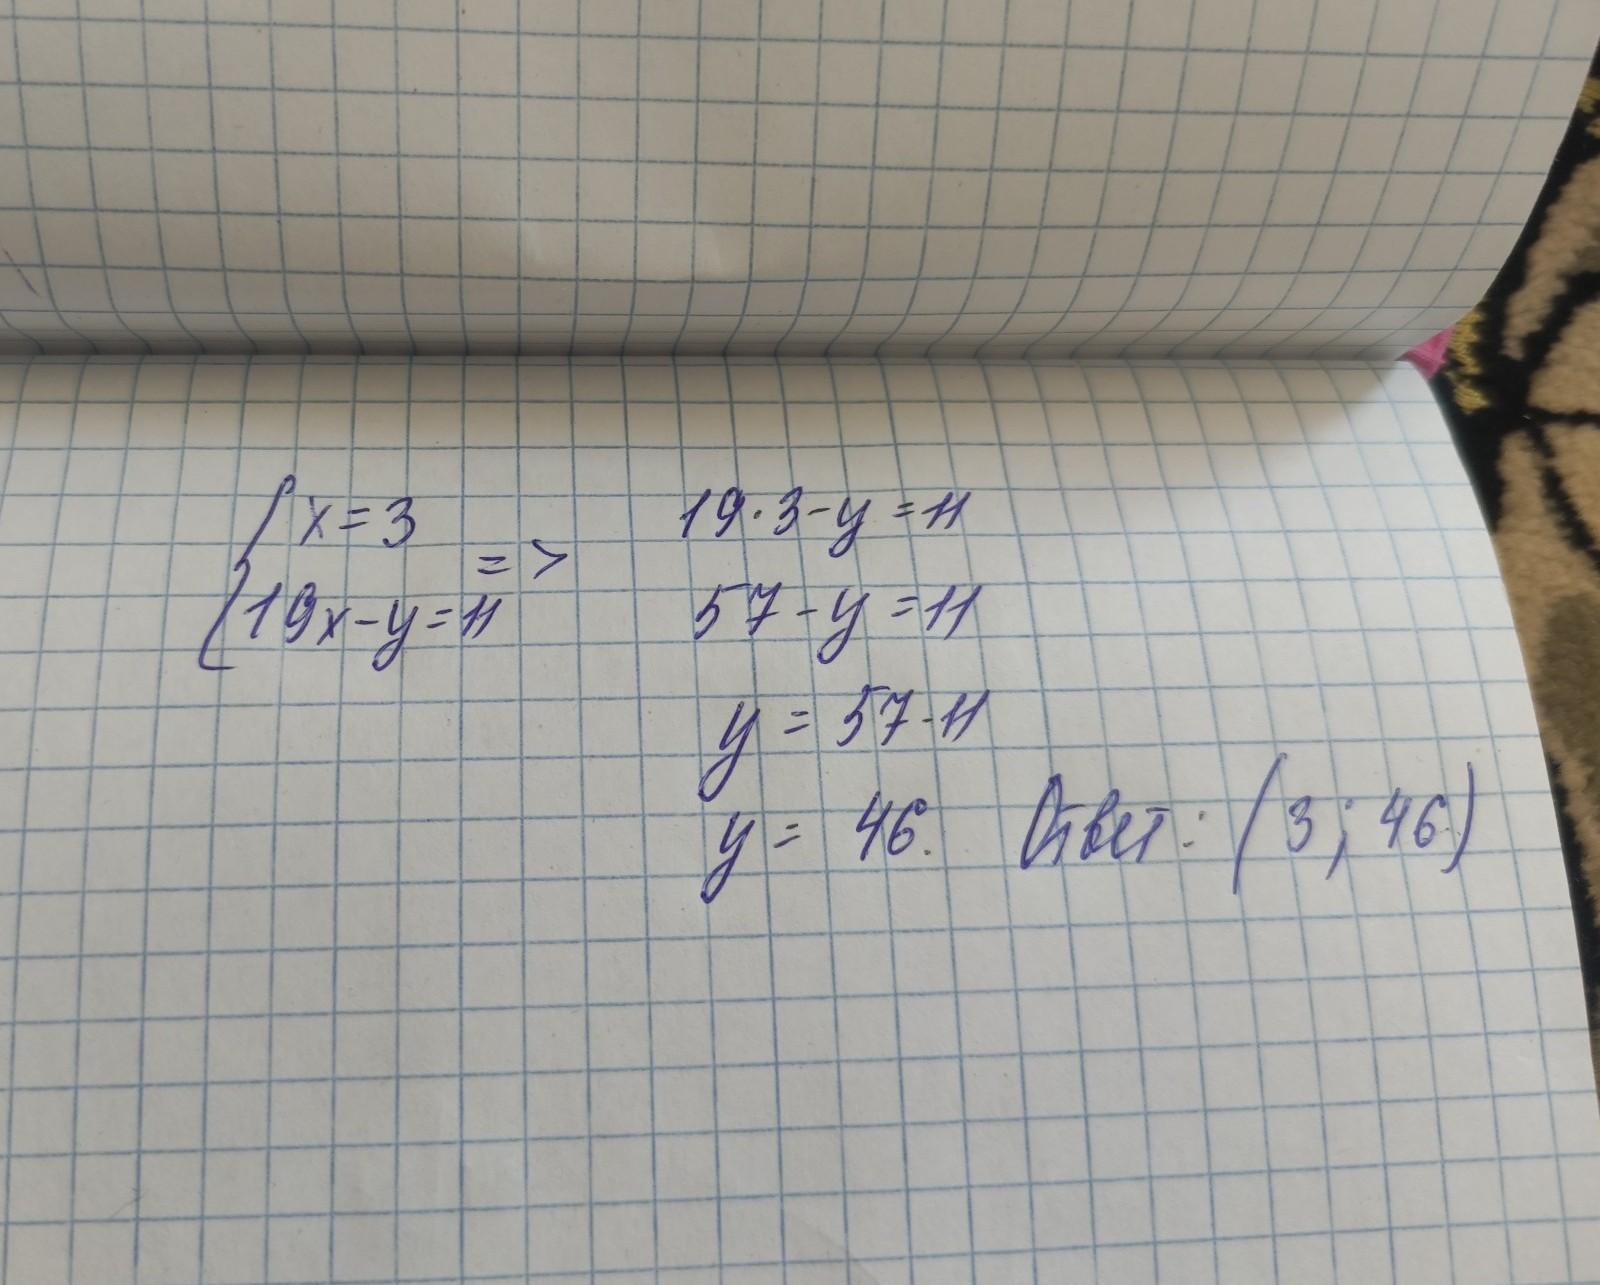 x=3
19x-y=11
=>
19·3-y=11
57-y=11
y=57-11
y= 46. Ответ: (3; 46)